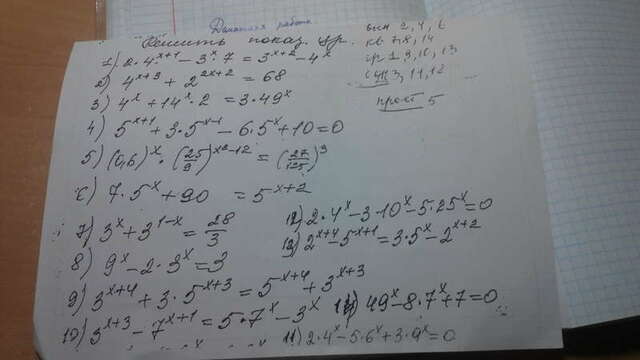 Домашняя работа
Решить показ. ур.
1) 2·4^{x+1} - 3^x·7 = 3^{x+2} - 4^x
2) 4^{x+3} + 2^{2x+2} = 68
3) 4^x + 14^x·2 = 3·49^x
4) 5^{x+1} + 3·5^{x-1} - 6·5^x + 10 = 0
5) (0,6)^x · (25/9)^{x²-12} = (27/125)^3
6) 7·5^x + 90 = 5^{x+2}
7) 3^x + 3^{1-x} = 28/3
8) 9^x - 2·3^x = 3
9) 3^{x+4} + 3·5^{x+3} = 5^{x+4} + 3^{x+3}
10) 3^{x+3} - 7^{x+1} = 5·7^x - 3^x
12) 2·4^x - 3·10^x - 5·25^x = 0
13) 2^{x+4} - 5^{x+1} = 3·5^x - 2^{x+2}
14) 49^x - 8·7^x + 7 = 0
11) 2·4^x - 5·6^x + 3·9^x = 0
вын 2, 4, 6
кв 7, 8, 14
гр 1, 9, 10, 13
3, 11, 12
прост 5